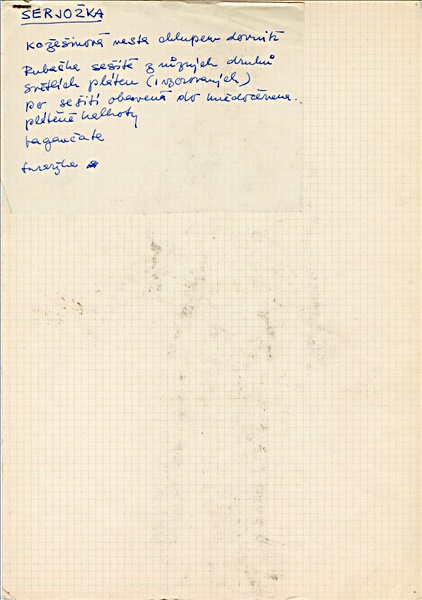 SERJOŽKA
Kožešinová vesta chlupem dovnitř
Rubaška sešitá z různých druhů
světlých pláten (i vzorovaných)
po sešití obarvená do hnědočervena.
plátěné kalhoty
bagančata